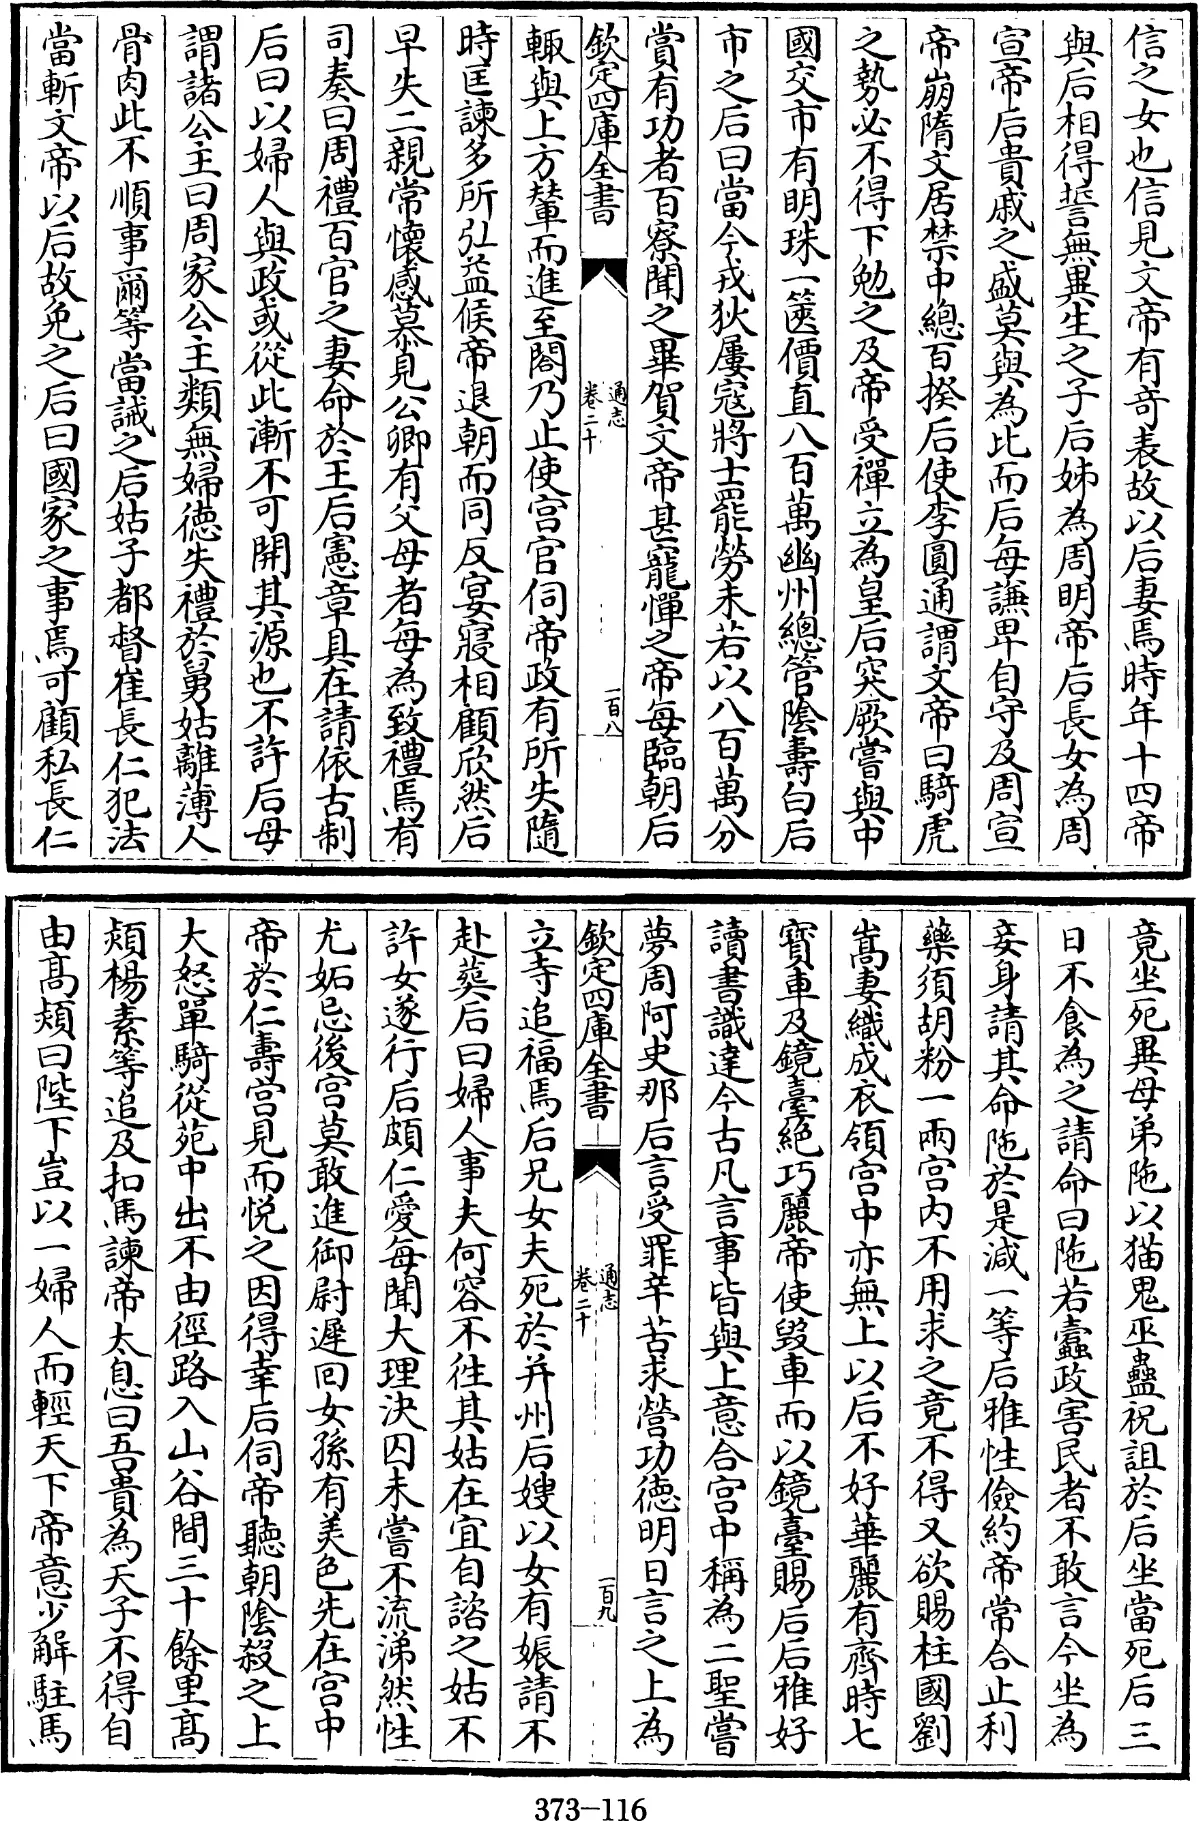 信之女也信見文帝有竒表故以后妻焉時年十四帝
與后相得誓無異生之子后姊為周明帝后長女為周
宣帝后貴戚之盛莫與為比而后每謙卑自守及周宣
帝崩隋文居禁中總百揆后使李圓通謂文帝曰騎虎
之勢必不得下勉之及帝受禪立為皇后突厥嘗與中
國交市有明珠一篋價直八百萬幽州總管陰壽白后
市之后曰當今戎狄屢寇將士罷勞未若以八百萬分
賞有功者百寮聞之畢賀文帝甚寵憚之帝每臨朝后
欽定四庫全書
通志
卷二十
一百八
輙與上方輦而進至閤乃止使宫官伺帝政有所失隨
時匡諫多所弘益候帝退朝而同反宴寢相顧欣然后
早失二親常懷感慕見公卿有父母者每為致禮焉有
司奏曰周禮百官之妻命於王后憲章具在請依古制
后曰以婦人與政或從此漸不可開其源也不許后毋
謂諸公主曰周家公主類無婦徳失禮於舅姑離薄人
骨肉此不順事爾等當誡之后姑子都督崔長仁犯法
當斬文帝以后故免之后曰國家之事焉可顧私長仁
竟坐死異母弟陁以猫鬼巫蠱祝詛於后坐當死后三
日不食為之請命曰陁若蠧政害民者不敢言今坐為
妾身請其命陁於是減一等后雅性儉約帝常合止利
藥須胡粉一兩宫内不用求之竟不得又欲賜柱國劉
嵩妻織成衣領宫中亦無上以后不好華麗有齊時七
寶車及鏡臺絶巧麗帝使毁車而以鏡臺賜后后雅好
讀書識達今古凡言事皆與上意合宫中稱為二聖嘗
夢周阿史那后言受罪辛苦求營功徳明日言之上為
欽定四庫全書
通志
卷二十
一百九
立寺追福焉后兄女夫死於并州后嫂以女有娠請不
赴葬后曰婦人事夫何容不徃其姑在宜自諮之姑不
許女遂行后頗仁愛每聞大理決囚未嘗不流涕然性
尤妬忌後宫莫敢進御尉遲回女孫有美色先在宫中
帝於仁壽宫見而悦之因得幸后伺帝聽朝隂殺之上
大怒單騎從苑中出不由徑路入山谷間三十餘里髙
熲楊素等追及扣馬諫帝太息曰吾貴為天子不得自
由髙熲曰陛下豈以一婦人而輕天下帝意少解駐馬
373-116